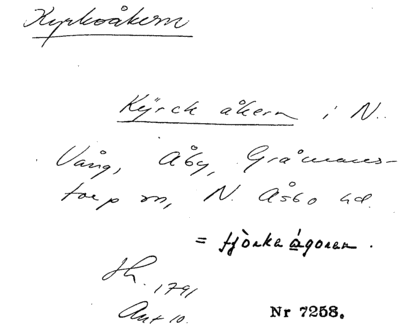 Kyrkoåkern
Kÿrck åkern i N.
Vång, Åby, Gråmans-
torp sn, N. Åsbo hd.
= tjörka ågoren.
Sk. 1791
Akt 10.
Nr 7258.